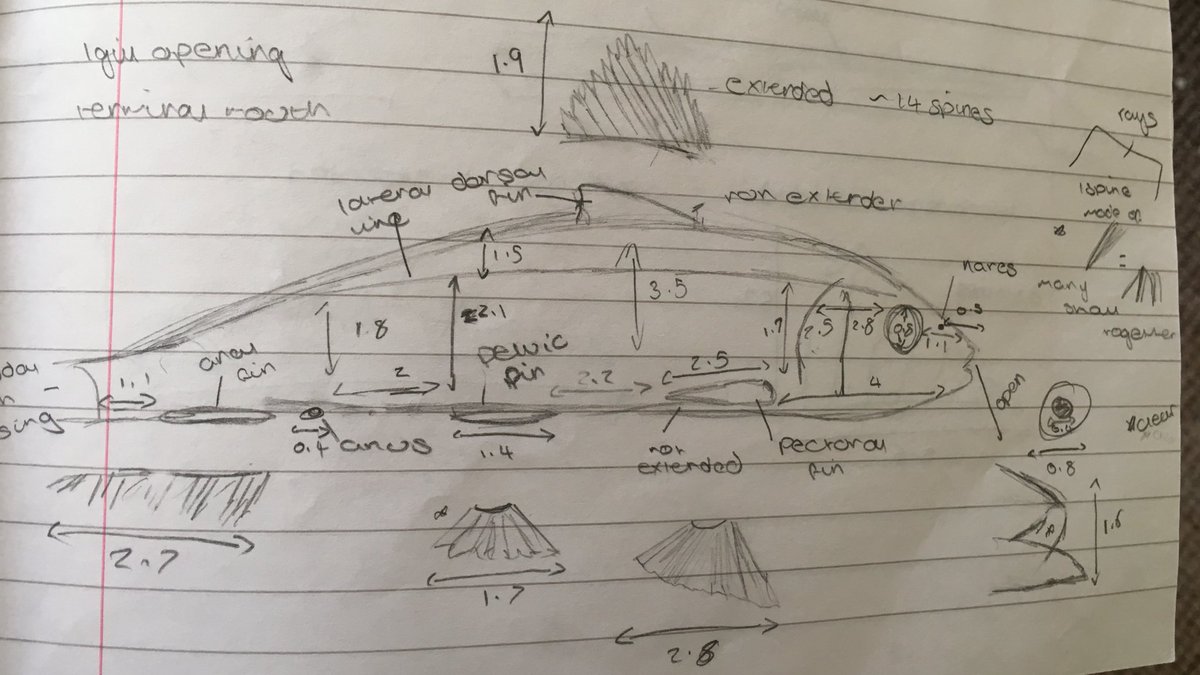 1 gill opening
terminal mouth
1.9
extended ~14 spines
rays
1 spine
made of
=
many
small
together
lateral
line
dorsal
fin
non extended
nares
1.5
3.5
2.1
1.8
1.9
2.5
2.8
0.8
0.5
1.1
anal
fin
pelvic
fin
1.1
2
2.2
2.5
4
open
sing
0.4
anus
1.4
not
extended
pectoral
fin
0.8
2.7
1.7
2.8
1.6